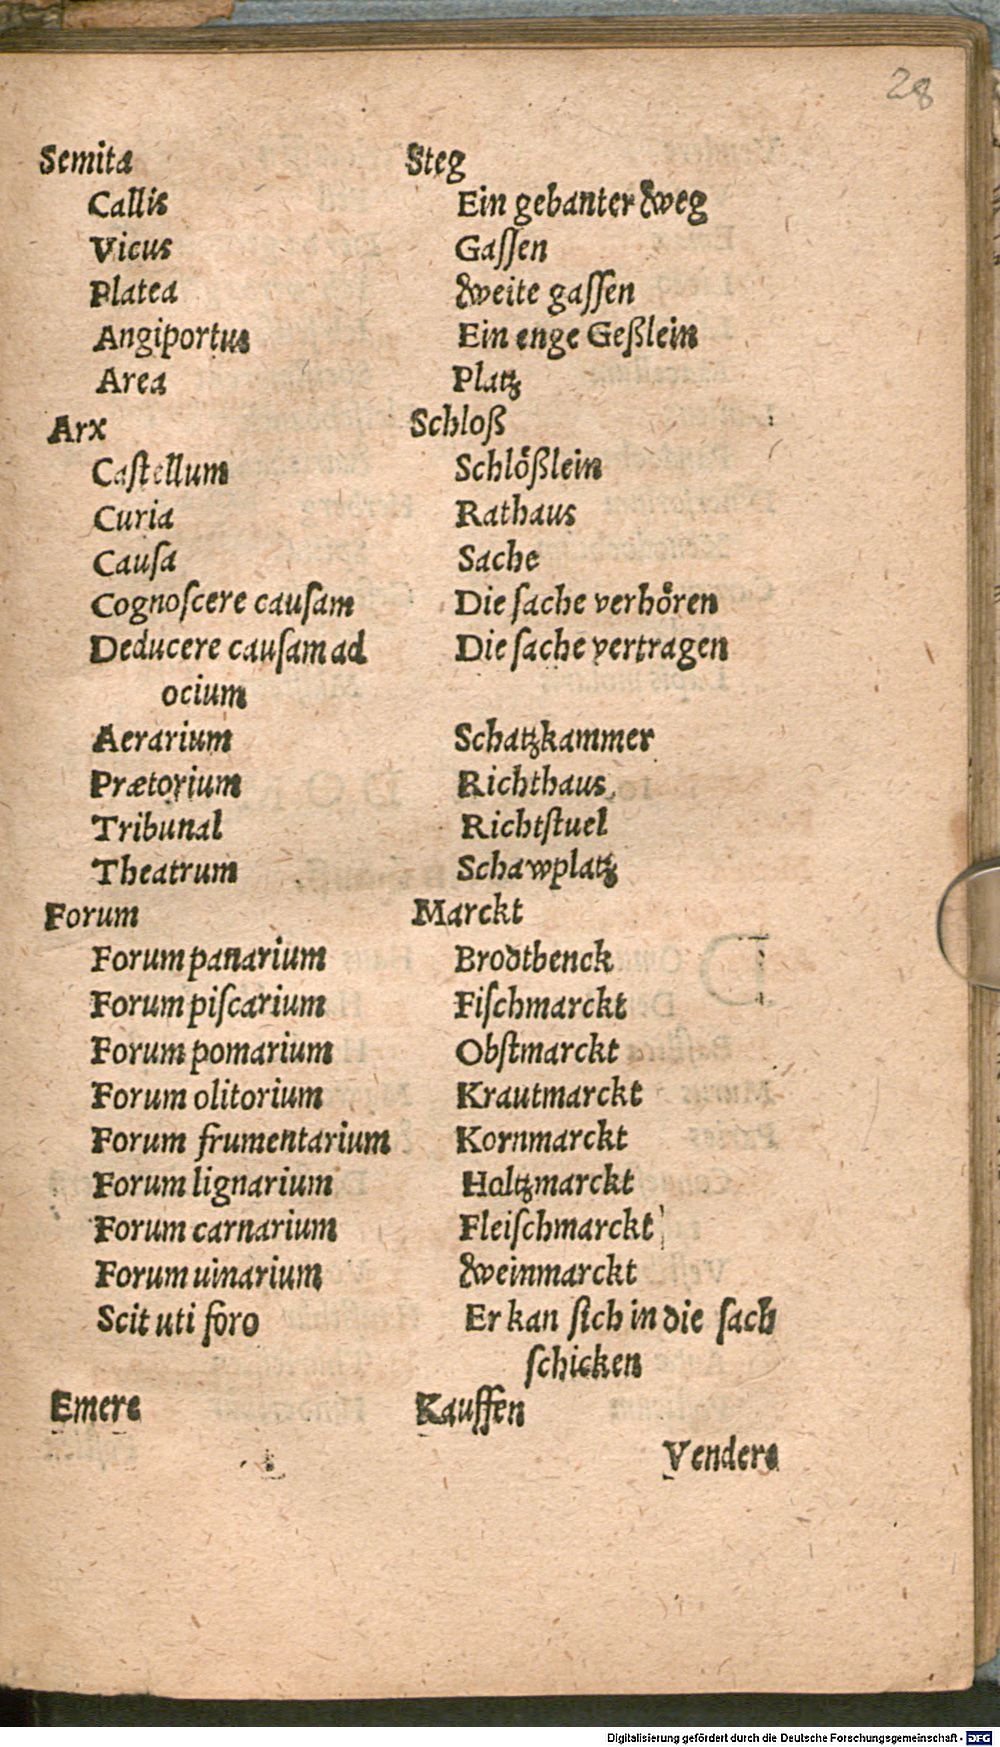 28
Semita Steg
Callis Ein gebanter Weg
Vicus Gaſſen
Platea Weite gaſſen
Angiportus Ein enge Geßlein
Area Platz
Arx Schloß
Caſtellum Schlößlein
Curia Rathaus
Cauſa Sache
Cognoſcere cauſam Die ſache verhören
Deducere cauſam ad Die ſache vertragen
ocium
Aerarium Schatzkammer
Prætorium Richthaus
Tribunal Richtſtuel
Theatrum Schawplatz
Forum Marckt
Forum panarium Brodtbenck
Forum piſcarium Fiſchmarckt
Forum pomarium Obſtmarckt
Forum olitorium Krautmarckt
Forum frumentarium Kornmarckt
Forum lignarium Holtzmarckt
Forum carnarium Fleiſchmarckt
Forum uinarium Weinmarckt
Scit uti foro Er kan ſich in die ſach
ſchicken
Emere Kauffen
Vendere
Digitalisierung gefördert durch die Deutsche Forschungsgemeinschaft - DFG